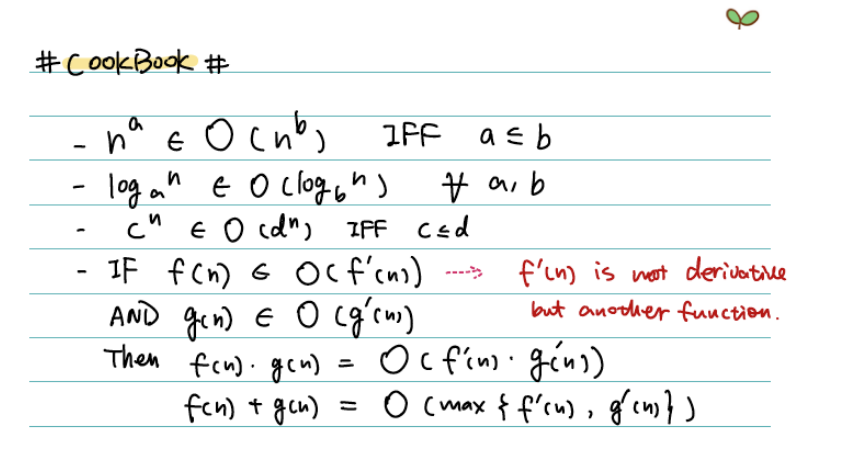 # CookBook #
- n^a ∈ O(n^b) IFF a ≤ b
- log_a n ∈ O(log_b n) ∀ a, b
- c^n ∈ O(d^n) IFF c ≤ d
- IF f(n) ∈ O(f'(n)) ----> f'(n) is not derivative
AND g(n) ∈ O(g'(n)) but another function.
Then f(n) · g(n) = O(f'(n) · g'(n))
f(n) + g(n) = O(max{f'(n), g'(n)})